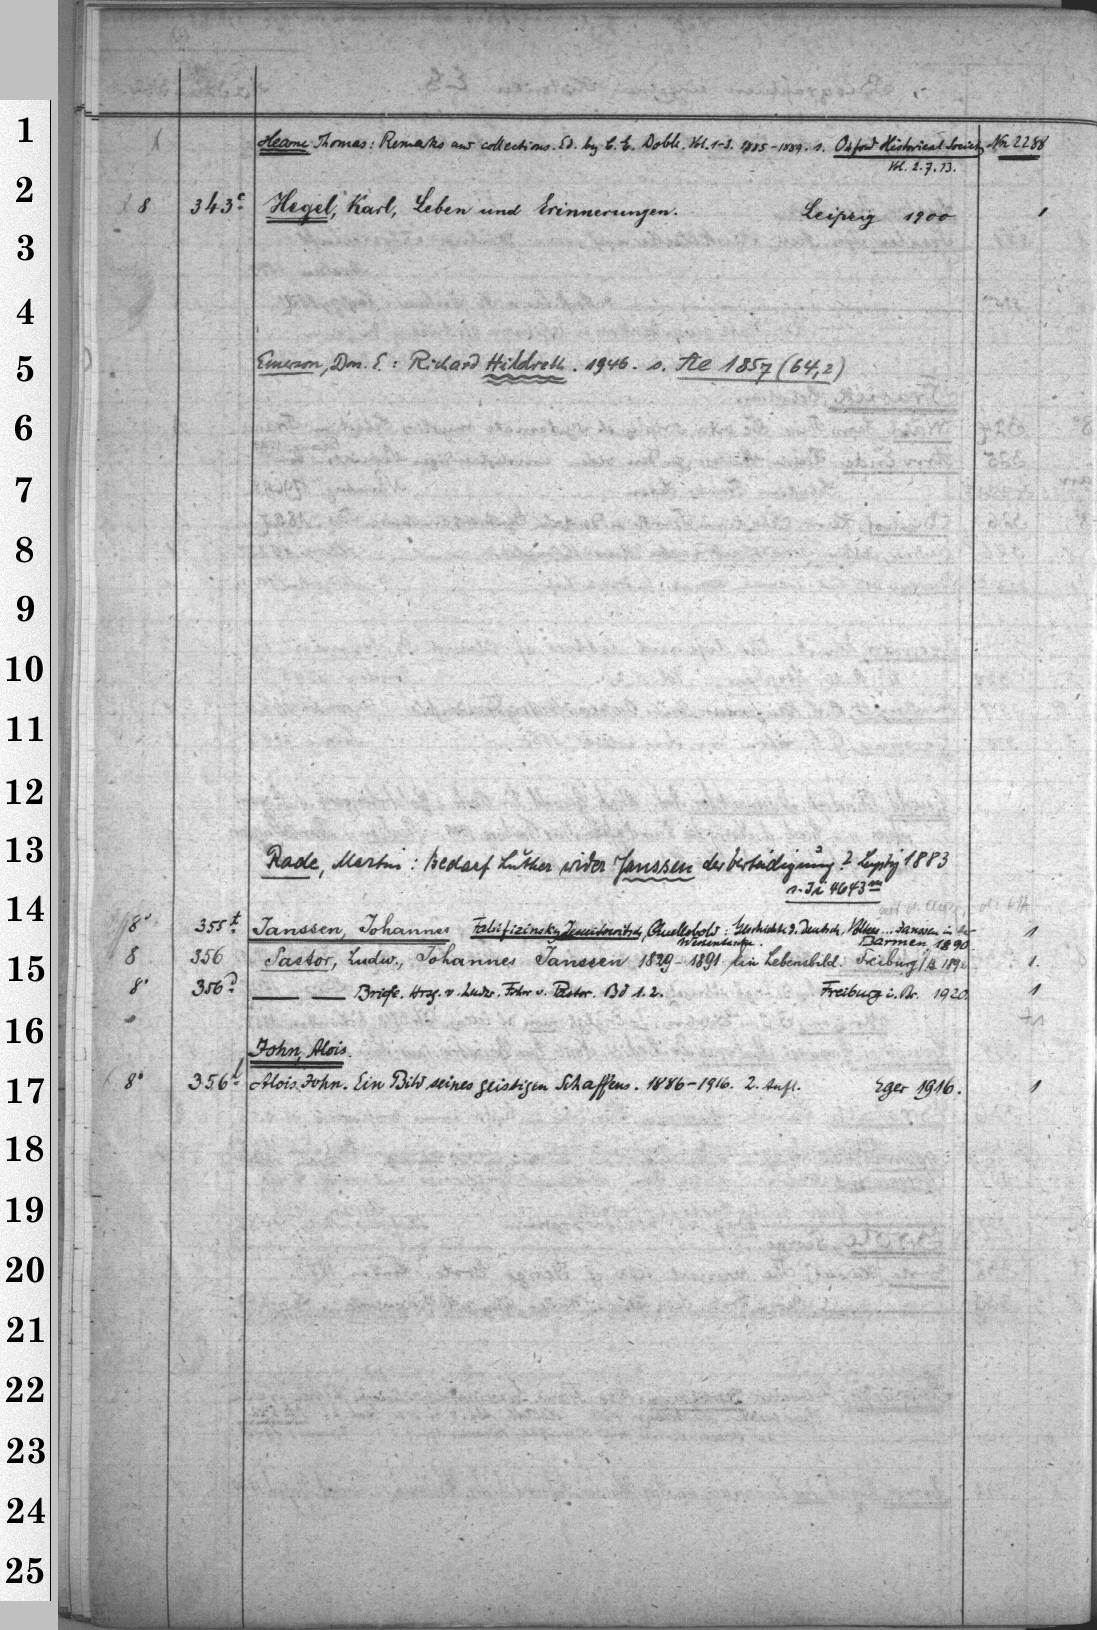 Hearne Thomas: Remarks and collections. Ed. by C. E. Doble. Vol. 1-3. 1885-1889. s. Oxford Historical Society Nr. 2288
Vol. 2. 7. 13.
8 343c Hegel, Karl, Leben und Erinnerungen. Leipzig 1900 1
Emerson, Don. E.: Richard Hildreth. 1946. s. Ae 1857 (64,2)
Rade, Martin: Bedarf Luther wider Janssen der Verteidigung? Leipzig 1883
s. Ji 4643m
8° 355t Janssen, Johannes Quellenbold: Geschichte d. Deutsch. Volkes ... Janssen in der 1
Westentasche. Barmen 1890
8 356 Pastor, Ludw., Johannes Janssen 1829-1891, ein Lebensbild. Freiburg i/B 189 1.
8° 356d — — Briefe. Hrsg. v. Ludw. Frhr v. Pastor. Bd 1.2. Freiburg i. Br. 1920. 1
John, Alois.
8° 356l Alois John. Ein Bild seines geistigen Schaffens. 1886-1916. 2. Aufl. Eger 1916. 1
1
2
3
4
5
6
7
8
9
10
11
12
13
14
15
16
17
18
19
20
21
22
23
24
25